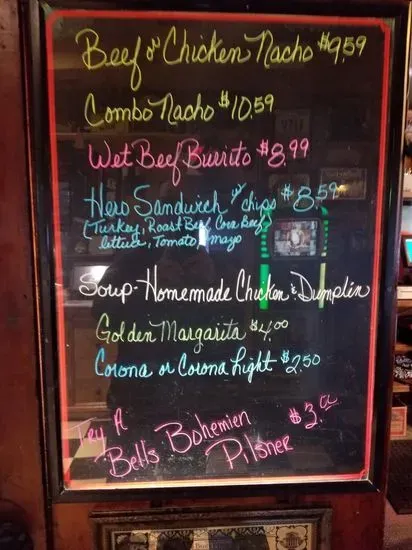 Beef or Chicken Nacho $9.59
Combo Nacho $10.59
Wet Beef Burrito $8.99
Hero Sandwich w/ chips $8.59
(Turkey, Roast Beef, Corn Beef,
lettuce, Tomato, mayo
Soup-Homemade Chicken & Dumplin
Golden Margarita $4.00
Corona or Corona Light $2.50
Try A
Bells Bohemien $3.00
Pilsner